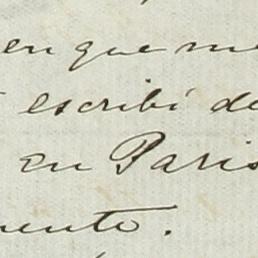 en que me
escribí de
en Paris
mente.